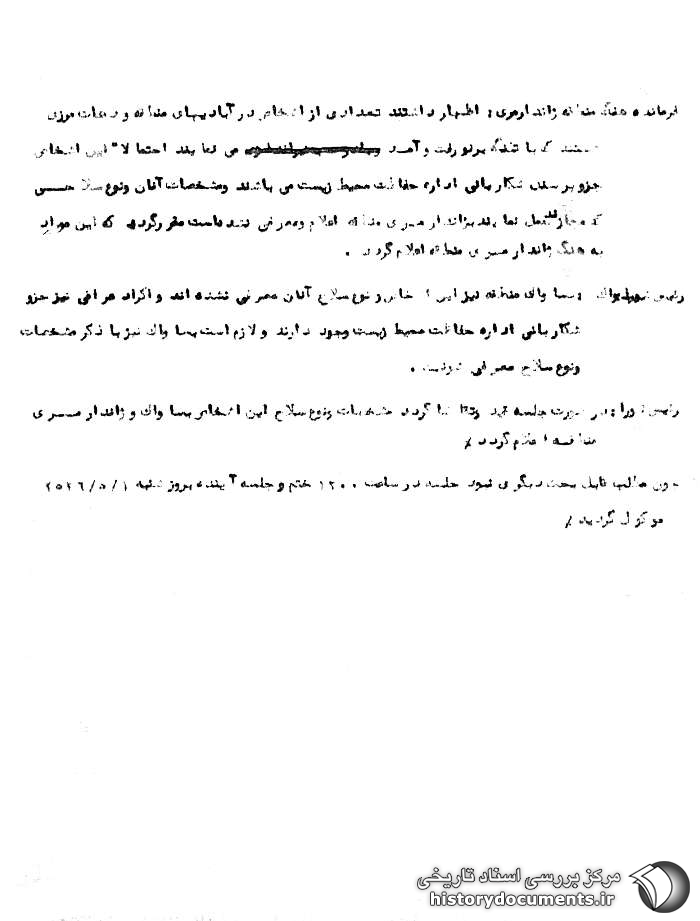 فرمانده هنگ منطقه ژاندارمری : اظهار داشتند تعدادی از اشخاص در آبادیهای منطقه و دهات مرزی
هستند که با تفنگ برنو رفت و آمد می نمایند احتمالا" این اشخاص
جزو پرسنل شکاربانی اداره حفاظت محیط زیست می باشند ومشخصات آنان ونوع سلاح
که مجازند حمل نمایند بژاندارمری منطقه اعلام ومعرفی نشده است مقرر گردید که این موارد
به هنگ ژاندارمری منطقه اعلام گردد .
رئیس ساواک بساواک منطقه نیز این اشخاص و نوع سلاح آنان معرفی نشده اند و اکراد عراقی نیز جزو
شکاربانی اداره حفاظت محیط زیست وجود دارند و لازم است بساواک نیز با ذکر مشخصات
ونوع سلاح معرفی شوند .
رئیس شورا : در صورت جلسه قید وتقاضا گردد مشخصات ونوع سلاح این اشخاص بساواک و ژاندارمری
منطقه اعلام گردد ٪
چون مطالب قابل بحث دیگری نبود جلسه در ساعت ۱۲۰۰ ختم و جلسه آینده بروز شنبه ۲۵۳۶/۵/۱
موکول گردید ٪
مرکز بررسی اسناد تاریخی
historydocuments.ir